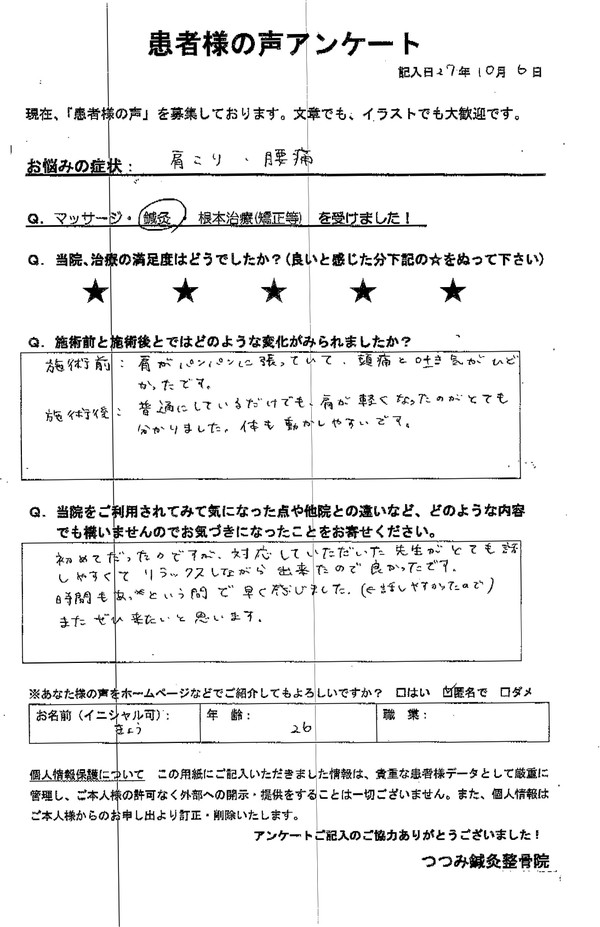 患者様の声アンケート
記入日27年10月6日
現在、「患者様の声」を募集しております。文章でも、イラストでも大歓迎です。
お悩みの症状： 肩こり、腰痛
Q. マッサージ・鍼灸・根本治療(矯正等) を受けました！
Q. 当院、治療の満足度はどうでしたか？(良いと感じた分下記の☆をぬって下さい)
★ ★ ★ ★ ★
Q. 施術前と施術後とではどのような変化がみられましたか？
施術前：肩がパンパンに張っていて、頭痛と吐き気がひど
かったです。
施術後：普通にしているだけでも、肩が軽くなったのがとても
分かりました。体も動かしやすいです。
Q. 当院をご利用されてみて気になった点や他院との違いなど、どのような内容
でも構いませんのでお気づきになったことをお寄せください。
初めてだったのですが、対応していただいた先生がとても話
しやすくてリラックスしながら出来たので良かったです。
時間もあっという間で早く感じました。(←話しやすかったので)
またぜひ来たいと思います。
※あなた様の声をホームページなどでご紹介してもよろしいですか？ □はい ☑匿名で □ダメ
お名前（イニシャル可）： 年 齢： 職 業：
きょう 26
個人情報保護について この用紙にご記入いただきました情報は、貴重な患者様データとして厳重に
管理し、ご本人様の許可なく外部への開示・提供をすることは一切ございません。また、個人情報は
ご本人様からのお申し出より訂正・削除いたします。
アンケートご記入のご協力ありがとうございました！
つつみ鍼灸整骨院